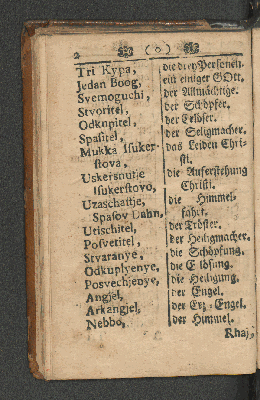 2 ( o )
Tri Kypa, die drey Personen.
Jedan Boog, ein einiger GOtt.
Svemoguchi, der Allmächtige.
Stvoritel, der Schöpfer.
Odknpitel, der Erlöser.
Spasitel, der Seligmacher.
Mukka Issuker- das Leiden Chri-
stova, sti.
Uskersnutje die Auferstehung
Isukerstovo, Christi.
Uzaschattje, die Himmel-
Spasov Dahn, fahrt.
Utischitel, der Tröster.
Posvetitel, der Heiligmacher.
Stvaranye, die Schöpfung.
Odkuplyenye, die Erlösung.
Posvechjenye, die Heiligung.
Angjel, der Engel.
Arkangjel, der Ertz-Engel.
Nebbo, der Himmel.
Rhaj,